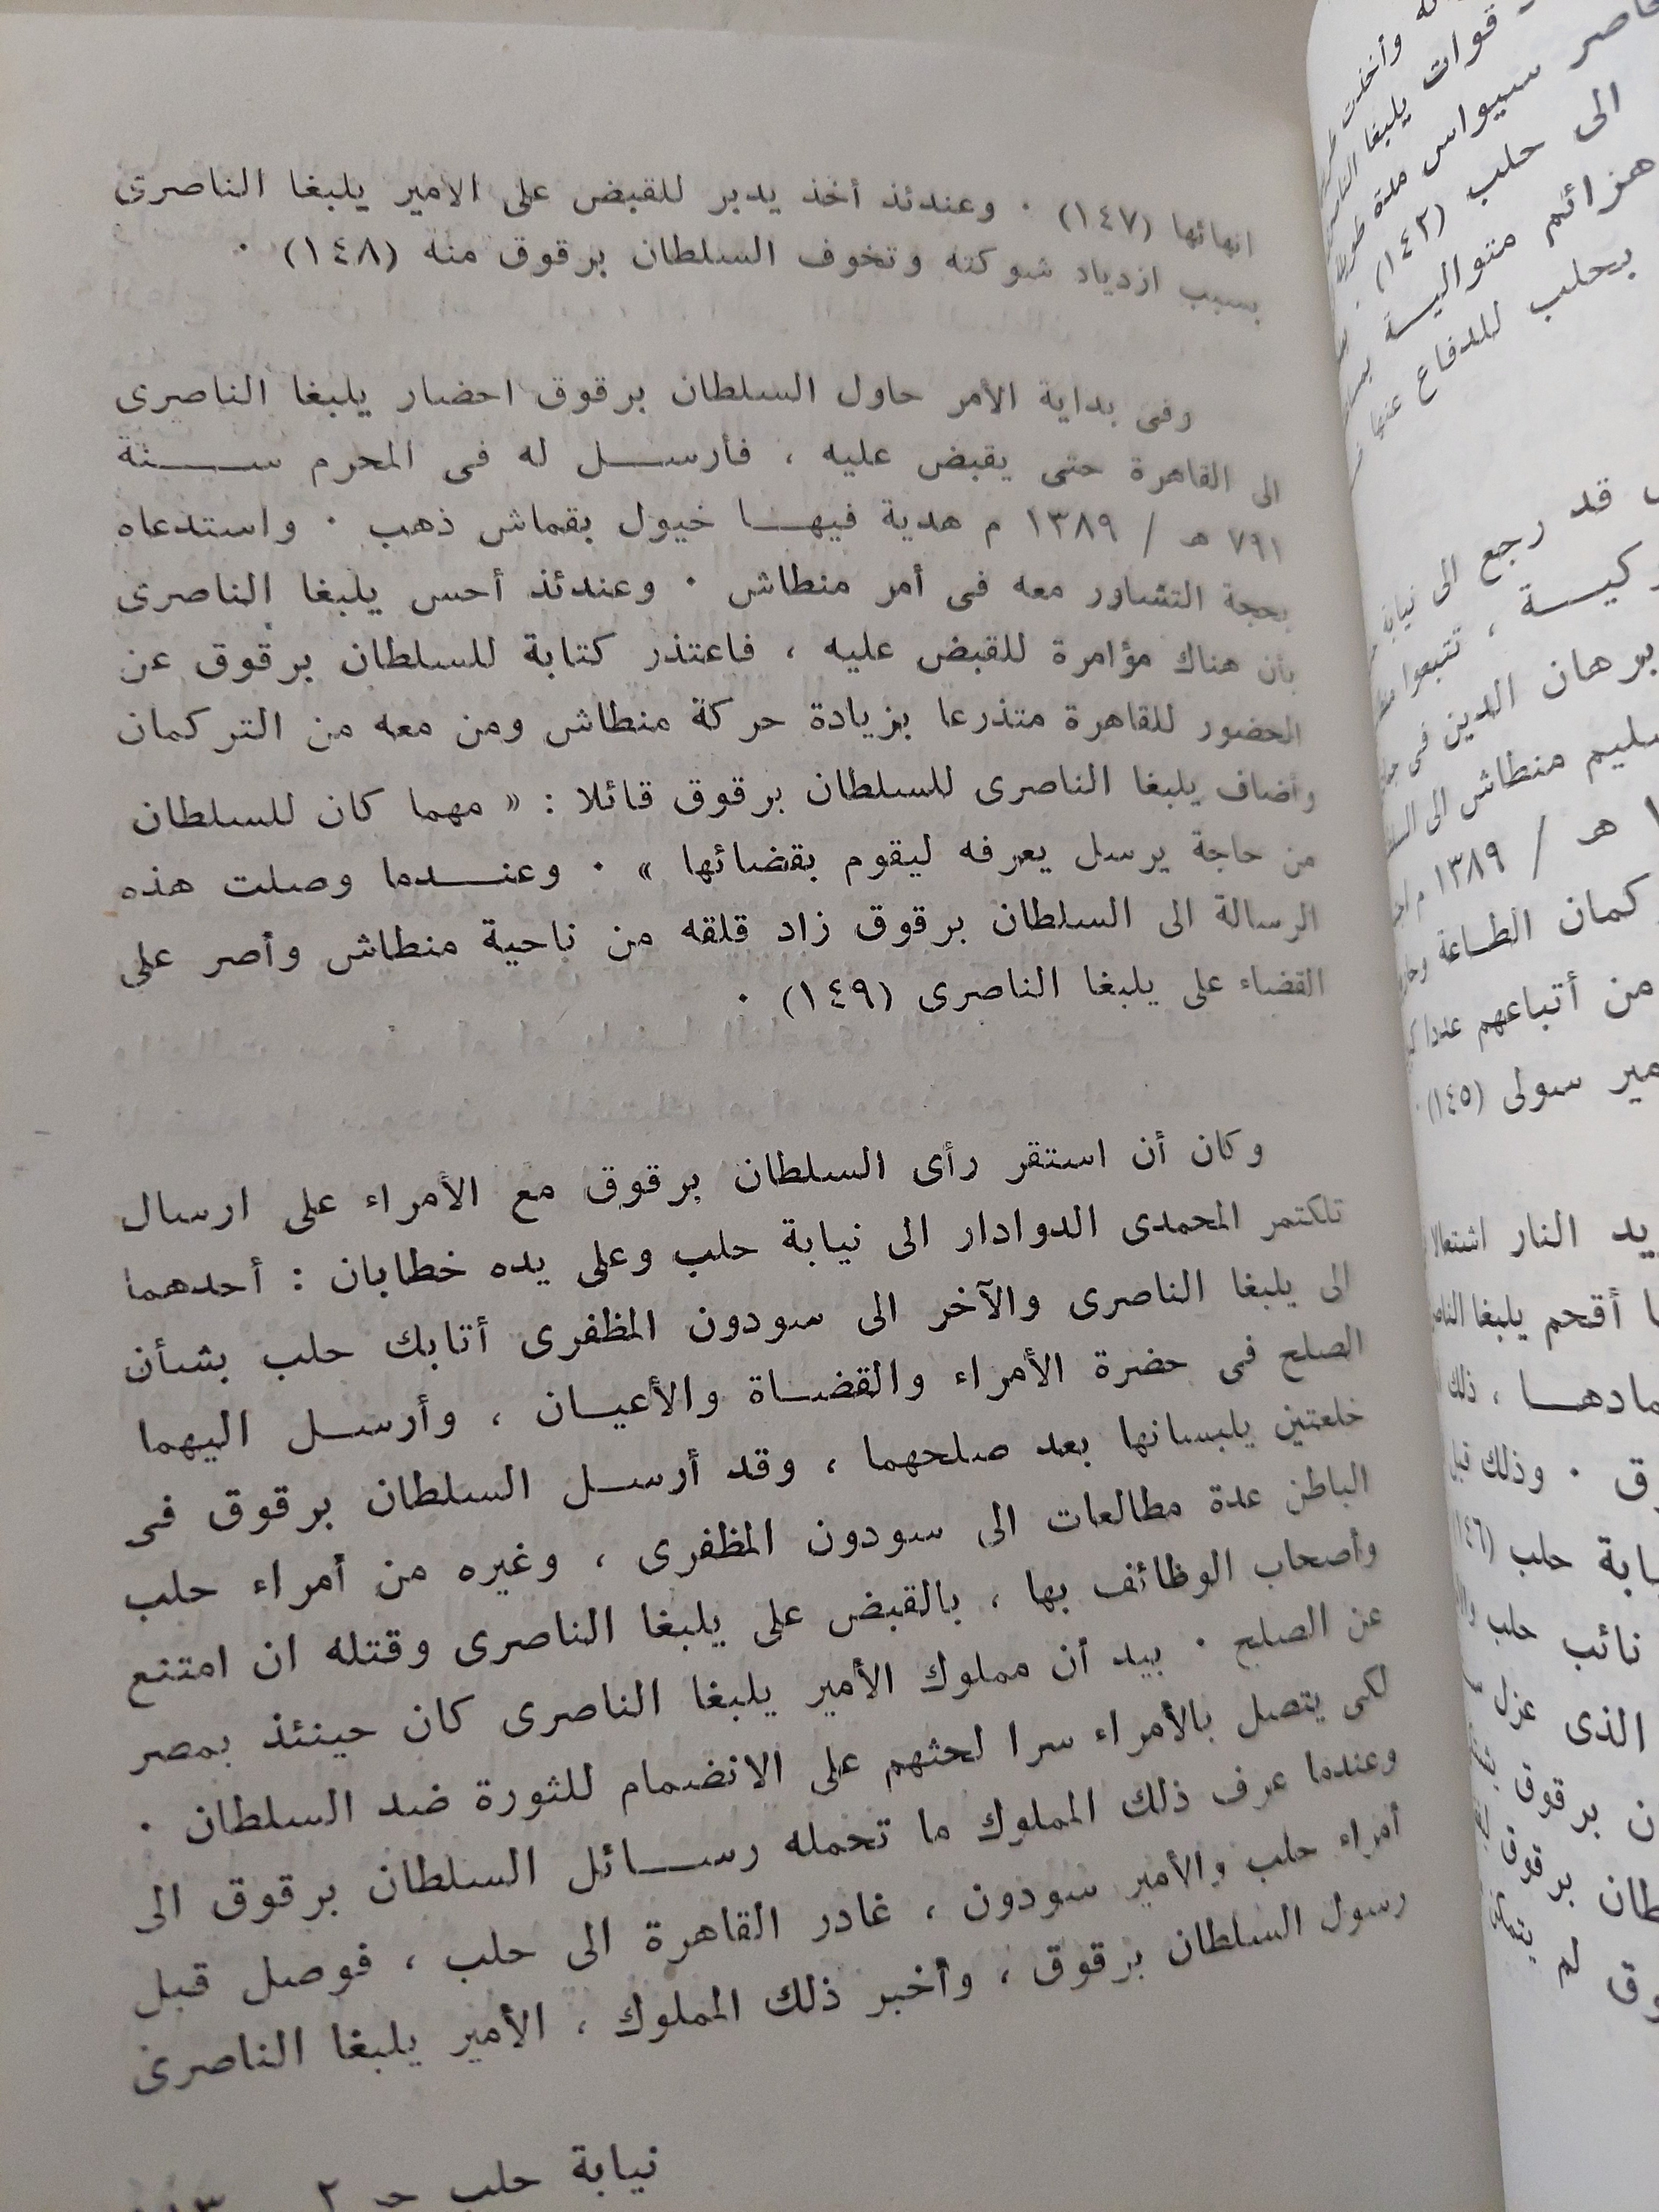 انهائها (١٤٧) ٠ وعندئذ أخذ يدبر للقبض على الامير يلبغا الناصرى
بسبب ازدياد شوكته وتخوف السلطان برقوق منه (١٤٨) ٠
وفى بداية الأمر حاول السلطان برقوق احضار يلبغا الناصرى
الى القاهرة حتى يقبض عليه ، فأرسل له فى المحرم سنة
٧٩١ هـ / ١٣٨٩ م هدية فيها خيول بقماش ذهب ٠ واستدعاه
بحجة التشاور معه فى أمر منطاش ٠ وعندئذ أحس يلبغا الناصرى
بأن هناك مؤامرة للقبض عليه ، فاعتذر كتابة للسلطان برقوق عن
الحضور للقاهرة متذرعا بزيادة حركة منطاش ومن معه من التركمان
وأضاف يلبغا الناصرى للسلطان برقوق قائلا : « مهما كان للسلطان
من حاجة يرسل يعرفه ليقوم بقضائها » ٠ وعندما وصلت هذه
الرسالة الى السلطان برقوق زاد قلقه من ناحية منطاش وأصر على
القضاء على يلبغا الناصرى (١٤٩) ٠
وكان أن استقر رأى السلطان برقوق مع الأمراء على ارسال
تلكتمر المحمدى الدوادار الى نيابة حلب وعلى يده خطابان : أحدهما
الى يلبغا الناصرى والآخر الى سودون المظفرى أتابك حلب بشأن
الصلح فى حضرة الأمراء والقضاة والأعيان ، وأرسل اليهما
خلعتين يلبسانها بعد صلحهما ، وقد أرسل السلطان برقوق فى
الباطن عدة مطالعات الى سودون المظفرى ، وغيره من أمراء حلب
وأصحاب الوظائف بها ، بالقبض على يلبغا الناصرى وقتله ان امتنع
عن الصلح ٠ بيد أن مملوك الأمير يلبغا الناصرى كان حينئذ بمصر
لكى يتصل بالأمراء سرا لحثهم على الانضمام للثورة ضد السلطان ٠
وعندما عرف ذلك المملوك ما تحمله رسائل السلطان برقوق الى
أمراء حلب والأمير سودون ، غادر القاهرة الى حلب ، فوصل قبل
رسول السلطان برقوق ، وأخبر ذلك المملوك ، الأمير يلبغا الناصرى
نيابة حلب حـ ٢
قوات يلبغا
سيواس مدة
الى حلب (١٤٢) ٠
هزائم متوالية
بحلب للدفاع عنها
قد رجع الى نيابة
، تتبعوا
برهان الدين فى
منطاش الى
هـ / ١٣٨٩ م
الطاعة
من أتباعهم عددا
سولى (١٤٥) ٠
النار اشتعالا
أقحم يلبغا
، ذلك
٠ وذلك قبل
حلب (١٤٦)
نائب حلب
الذى عزل
برقوق
برقوق
لم